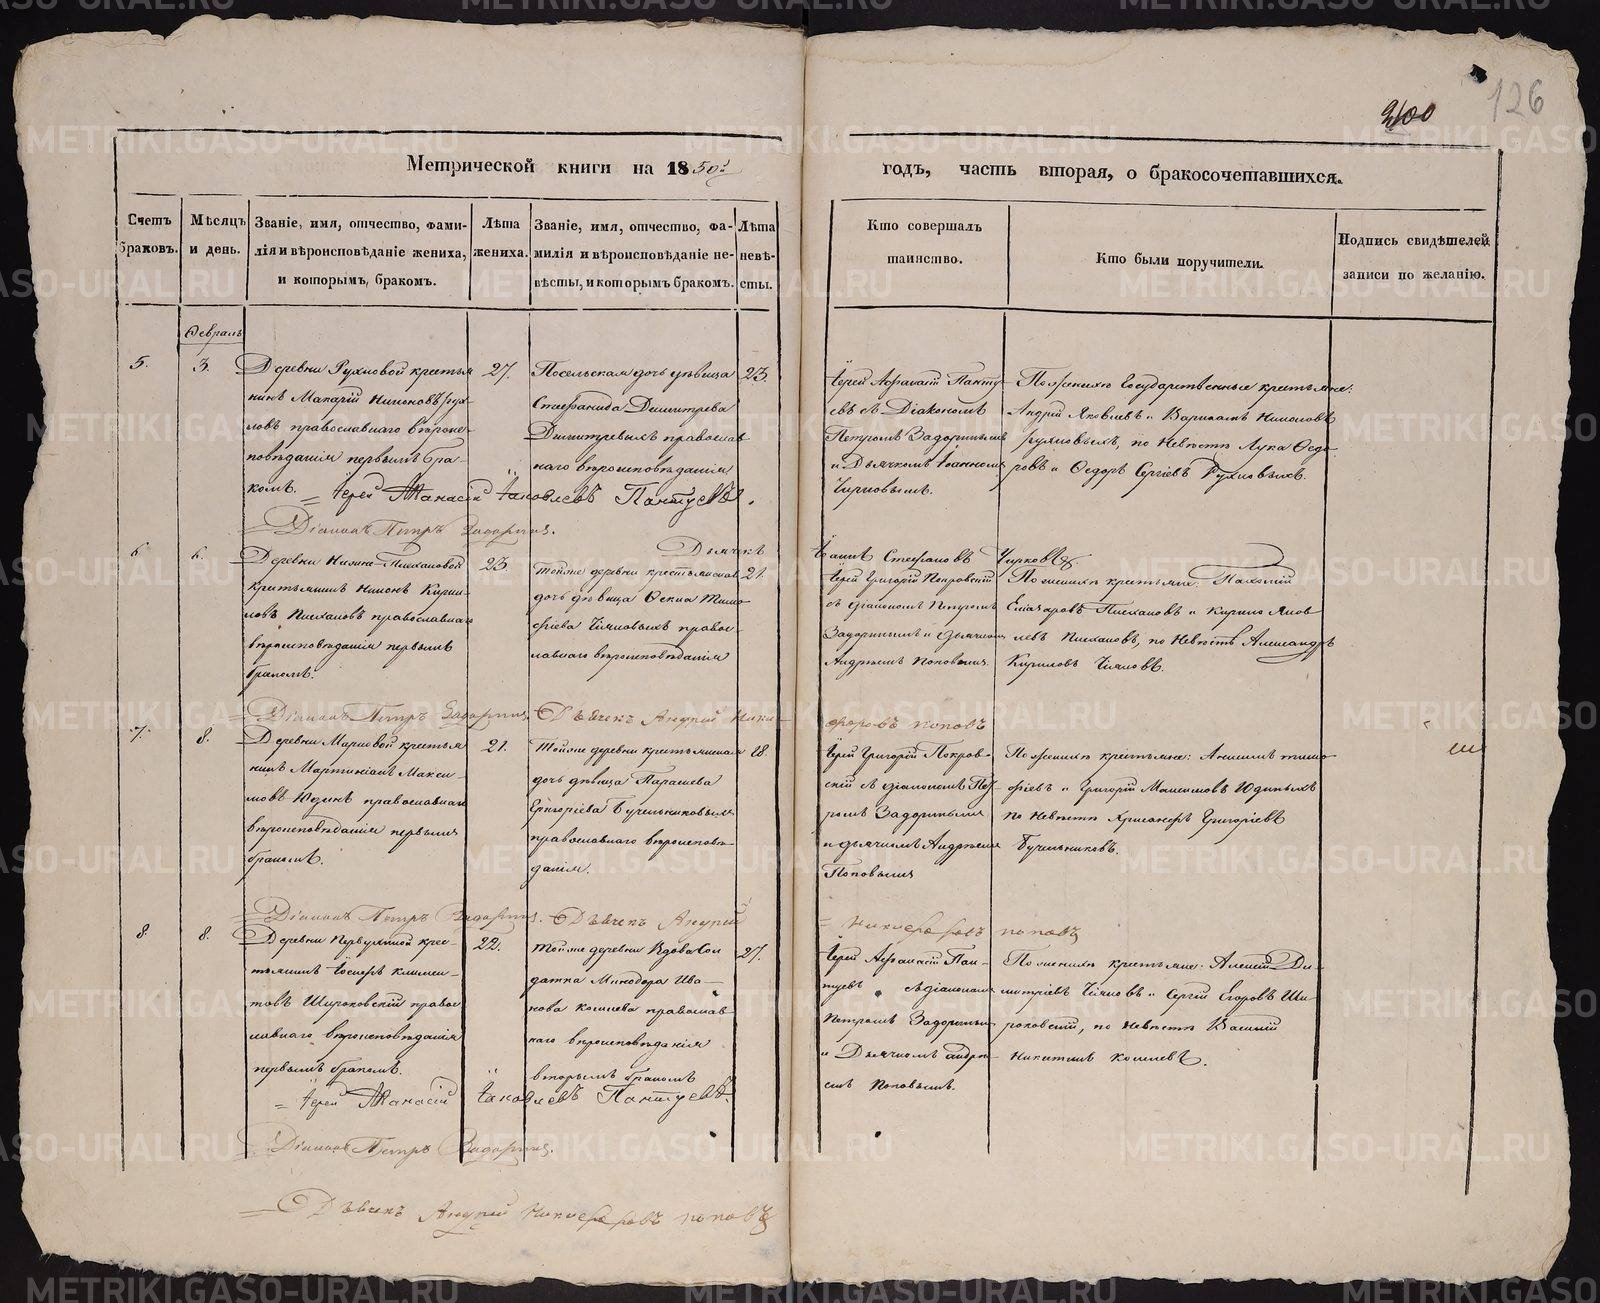 126
Метрической книги на 1850й
годъ, часть вторая, о бракосочетавшихся.
Счетъ браковъ.
Мѣсяцъ и день.
Званіе, имя, отчество, фами-
лія и вѣроисповѣданіе жениха,
и которымъ бракомъ.
Лѣта
жениха.
Званіе, имя, отчество, фа-
милія и вѣроисповѣданіе не-
вѣсты, и которымъ бракомъ.
Лѣта
невѣ-
сты.
Кто совершалъ
таинство.
Кто были поручители.
Подпись свидѣтелей
записи по желанію.
Февраль
5.
3.
Деревни Рухловой крестья
нинъ Макарій Никоновъ Рух-
ловъ православнаго вѣроис-
повѣданія первымъ бра-
комъ.
27.
дочь дѣвица
Стефанида Димитрева
Димитревыхъ православ
наго вѣроисповѣданія
23.
Іерей Афанасій Панту
евъ съ Діакономъ
Петромъ Задоринымъ
и Дьячкомъ Іоанномъ
Чирковымъ.
По женихѣ Государственные крестьяне:
Андрей Яковлевъ и Никоновъ
Рухловыхъ, по невѣстѣ Лука Федо
ровъ и Федоръ Сергіевъ Рухловыхъ.
= Іерей Аѳанасій Іаковлевъ Пантуевъ.
= Діаконъ Петръ Задоринъ.
Дьячекъ Іоаннъ Стефановъ Чирковъ
6
6.
Деревни
крестьянинъ Никонъ Кирил
ловъ Плехановъ православнаго
вѣроисповѣданія первымъ
бракомъ.
23.
тойже деревни крестьянская
дочь дѣвица Фекла Тимо
фіева право-
славнаго вѣроисповѣданія
21.
Іерей Григорій Покровскій
съ діакономъ Петромъ
Задоринымъ и дьячкомъ
Андреемъ Поповымъ.
По женихѣ крестьяне: Пахомій
Плехановъ и Кирило Яков
левъ Плехановъ, по невѣстѣ Александръ
Кириловъ
= Діаконъ Петръ Задоринъ. = Дьячекъ Андрей Ники-
форовъ Поповъ
7.
8.
Деревни крестья
нинъ Мартиніанъ Макси-
мовъ Юдинъ православнаго
вѣроисповѣданія первымъ
бракомъ.
21.
Тойже деревни крестьянская
дочь дѣвица
Григоріева Бучельниковыхъ
православнаго вѣроисповѣ-
данія.
18.
Іерей Григорій Покров-
скій съ діакономъ Пет-
ромъ Задоринымъ
и дьячкомъ Андреемъ
Поповымъ
По женихѣ крестьяне: Тимо
фіевъ и Григорій Максимовъ Юдиныхъ
по невѣстѣ Григоріевъ
Бучельниковъ.
= Діаконъ Петръ Задоринъ. = Дьячекъ Андрей
= Никифоровъ Поповъ
8.
8.
Деревни крес-
тьянинъ Іосифъ Климен-
товъ Широковскій право
славнаго вѣроисповѣданія
первымъ бракомъ.
22.
Тойже деревни Вдова Сол
датка Минодора Ива-
нова Кошлева православ
наго вѣроисповѣданія
вторымъ бракомъ
27.
Іерей Афанасій Пан-
туевъ съ діакономъ
Петромъ Задоринымъ
и Дьячкомъ Андре-
емъ Поповымъ.
По женихѣ крестьяне: Алексій Ди-
митріевъ и Сергій Егоровъ Ши-
роковскій, по невѣстѣ Василій
Никитинъ Кошлевъ.
= Іерей Аѳанасій Іаковлевъ Пантуевъ.
= Діаконъ Петръ Задоринъ.
= Дьячекъ Андрей Никифоровъ Поповъ
METRIKI.GASO-URAL.RU